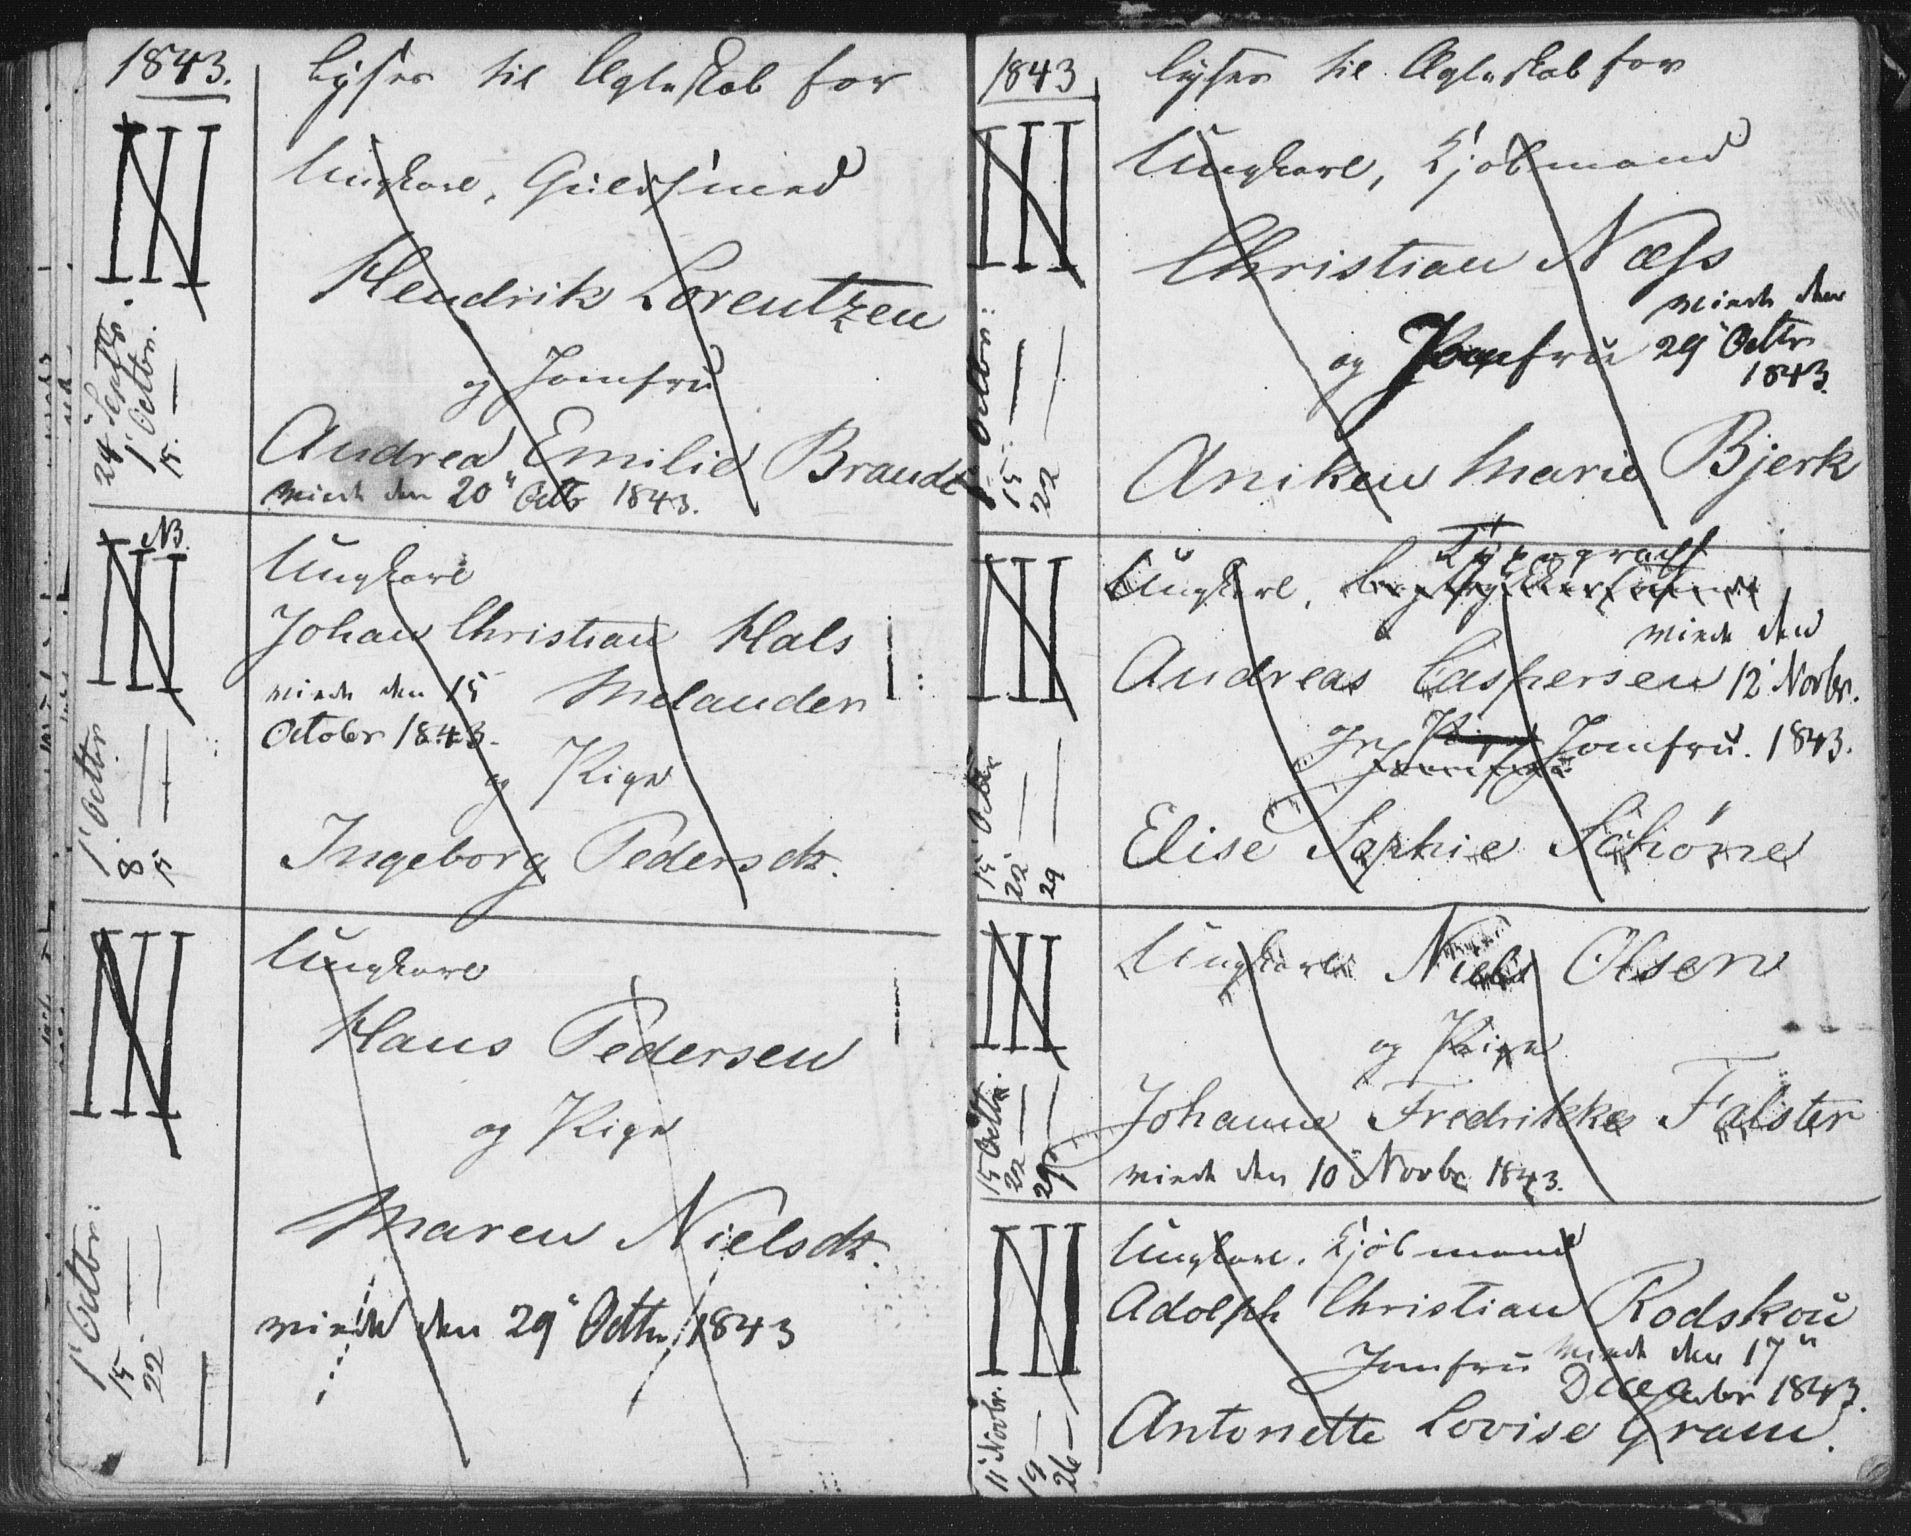 1843.
lyses til Ægteskab for
III
24 Septbr.
1 Octbr.
15. —
Ungkarl, Guldsmed
Hendrik Lorentzen
og Jomfru
Andrea Emilie Brandt
viede den 20" Octbr 1843.
NB.
III
1' Octbr
8. —
15 —
Ungkarl
Johan Christian Hals
viede den 15 Melander
October 1843.
og Pige
Ingeborg Pedersdtr.
III
1' Octbr:
15 —
22. —
Ungkarl
Hans Pedersen
og Pige
Maren Nielsdtr.
viede den 29" Octbr 1843
1843
lyses til Ægteskab for
III
Octbr:
15. —
22 —
Ungkarl, Kjøbmand
Christian Næss
viede den
og Jomfru 29" Octbr
1843.
Aniken Marie Bjerk
III
15' Octbr
22' —
29 —
Typograph
Ungkarl,
viede den
Andreas Caspersen 12' Novbr.
og Pige Jomfru. 1843.
Jomfru
Elise Sophie Schöne
III
15 Octbr.
22 —
29 —
Ungkarl Niels Olsen
og Pige
Johanne Fredrikke Falster
viede den 10" Novbr 1843.
III
11' Novbr.
19 —
26 —
Ungkarl, Kjøbmand
Adolph Christian Rodskou
Jomfru viede den 17"
December 1843.
Antonette Lovise Gram.